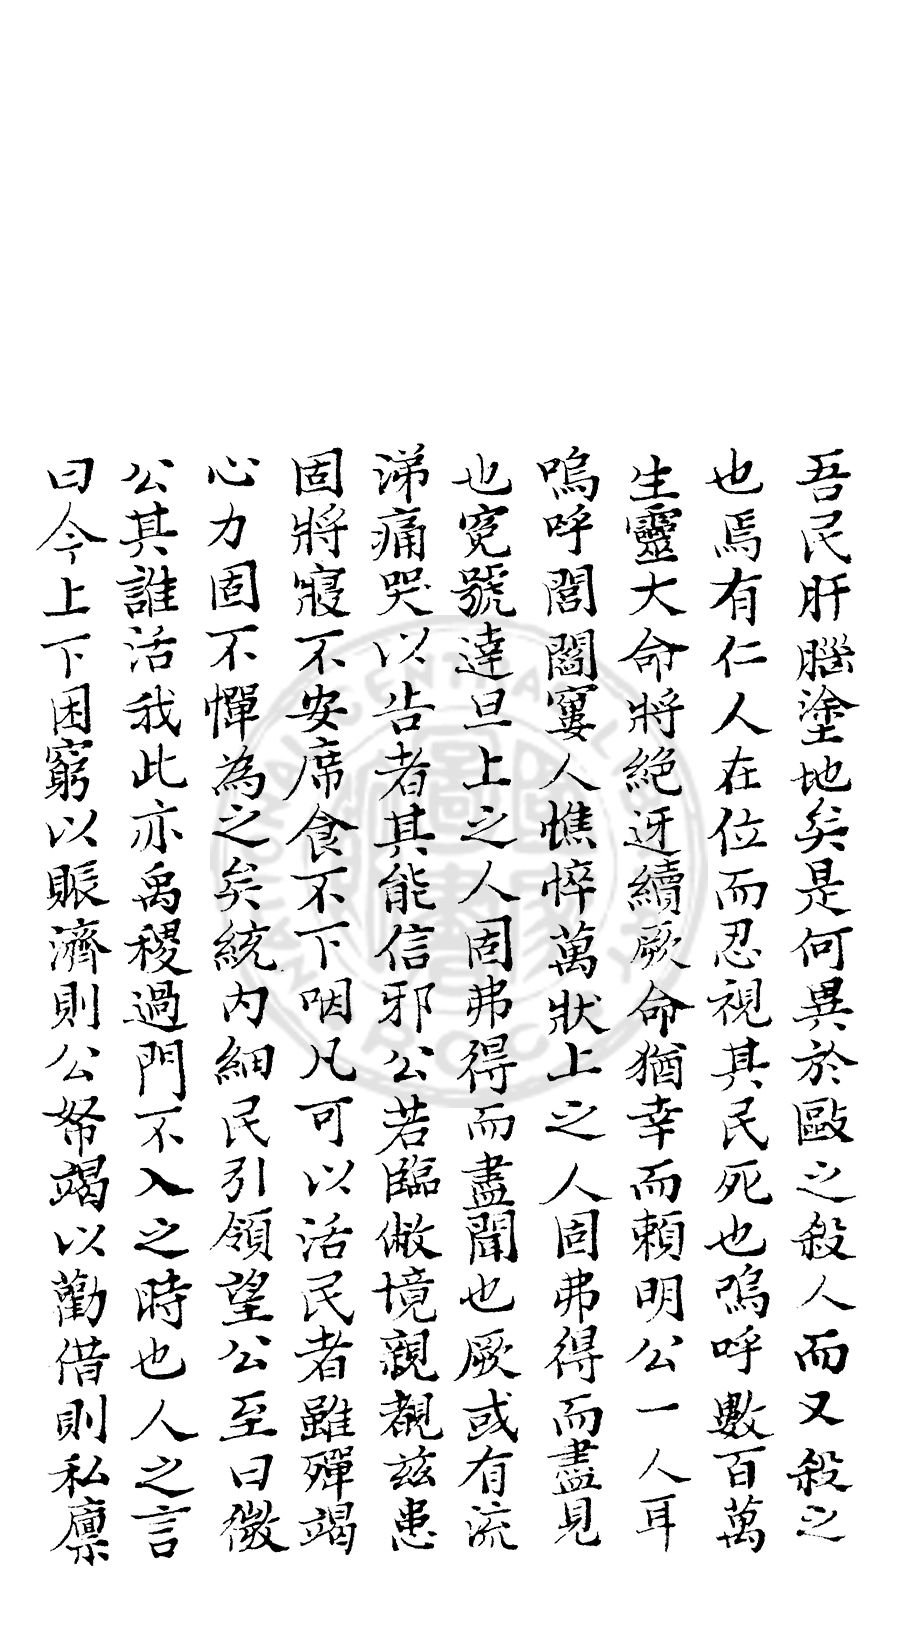 吾民肝腦塗地矣是何異於毆之殺人而又殺之
也焉有仁人在位而忍視其民死也嗚呼數百萬
生靈大命將絕迓續厥命猶幸而賴明公一人耳
嗚呼閭閻窶人憔悴萬狀上之人固弗得而盡見
也寃號達旦上之人固弗得而盡聞也厥或有流
涕痛哭以告者其能信邪公若臨敝境親覩茲患
固將寢不安席食不下咽凡可以活民者雖殫竭
心力固不憚為之矣統內細民引領望公至曰微
公其誰活我此亦禹稷過門不入之時也人之言
曰今上下困窮以賑濟則公帑竭以勸借則私廪